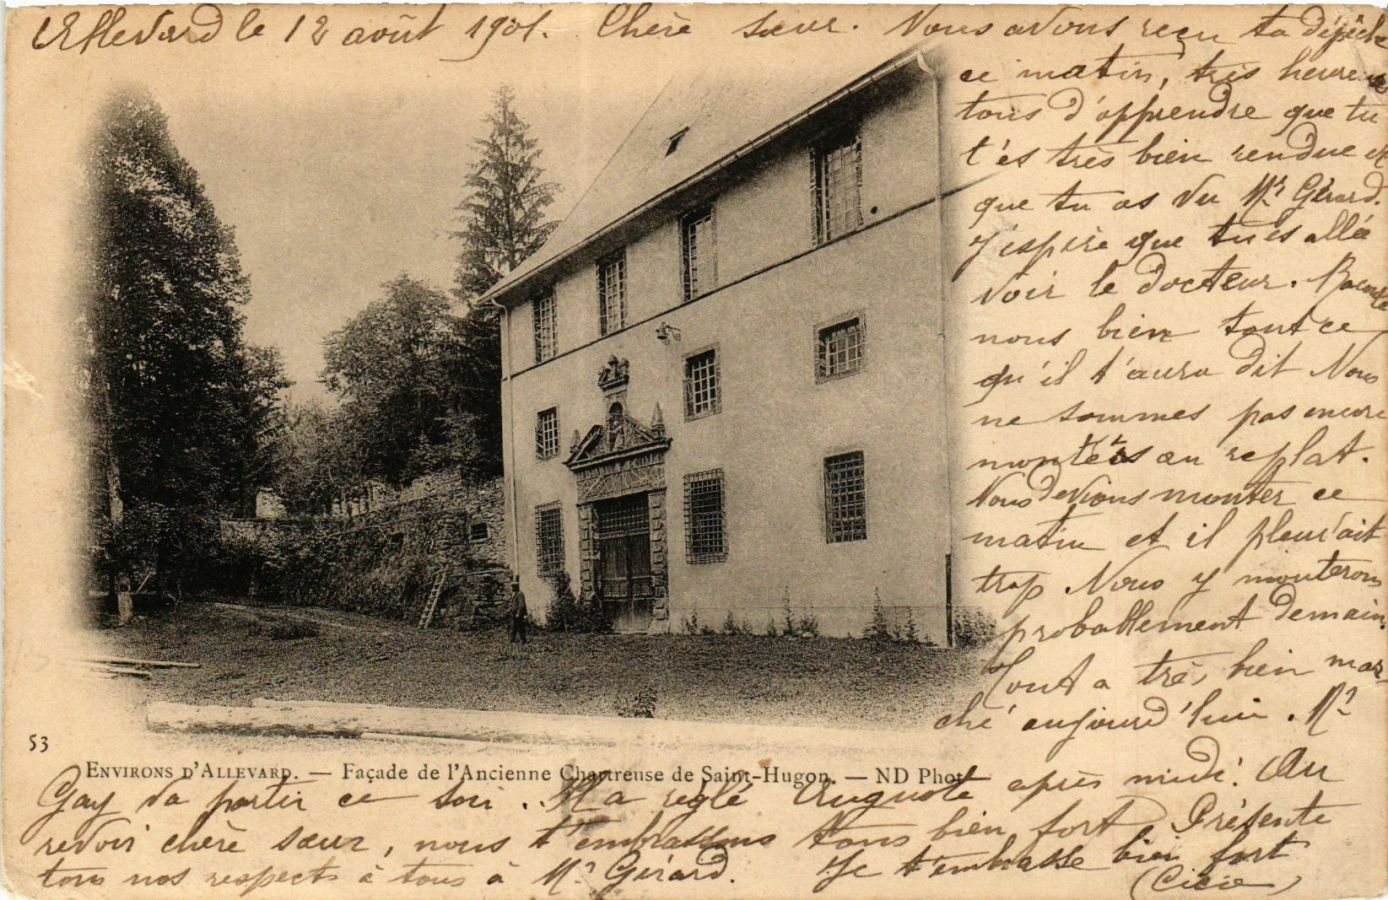 Allevard le 12 août 1901. Chère sœur. Nous avons reçu ta dépêche
ce matin, très heureux
tous d'apprendre que tu
t'es très bien rendue et
que tu as vu Mr Gérard.
J'espère que tu es allée
voir le docteur. Raconte
nous bien tout ce
qu'il t'aura dit Nous
ne sommes pas encore
montés au replat.
Nous devions monter ce
matin et il pleuvait
trop Nous y monterons
probablement demain.
Tout a très bien mar-
ché aujourd'hui. Mr
53
ENVIRONS D'ALLEVARD. — Façade de l'Ancienne Chartreuse de Saint-Hugon. — ND Phot
Gay va partir ce soir. Il a reglé Auguste après midi. Au
revoir chère sœur, nous t'embrassons tous bien fort Présente
tous nos respects à tous à Mr Gérard. Je t'embrasse bien fort
(Cicie)